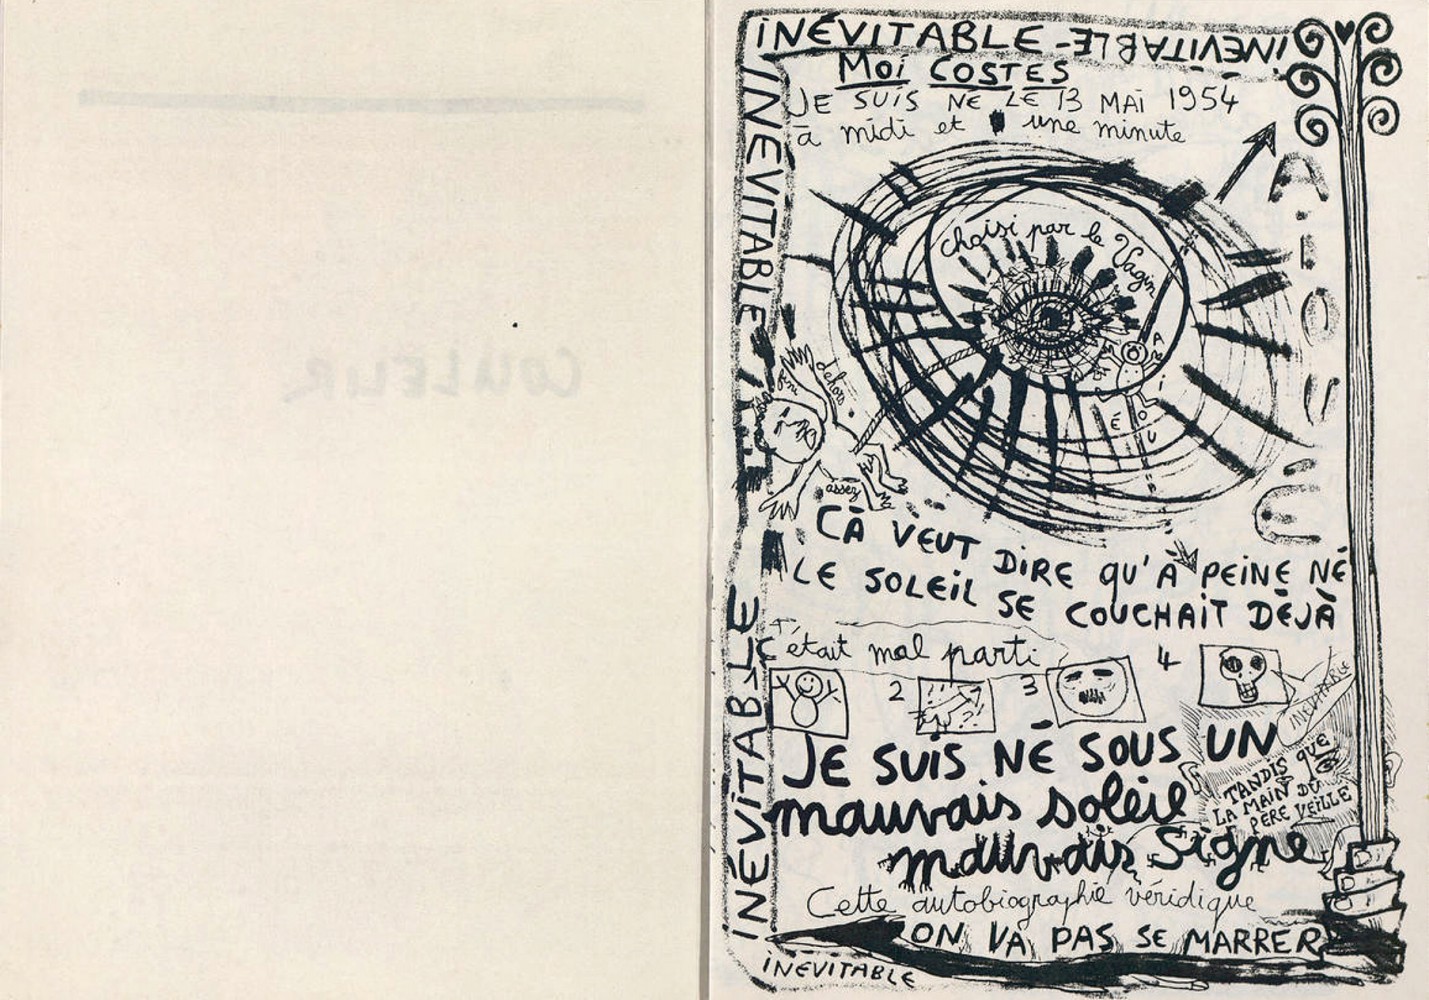 COULEUR
INÉVITABLE - INÉVITABLE
INÉVITABLE
INÉVITABLE
INÉVITABLE
MOi COSTES
JE SUIS NÉ LE 13 MAi 1954
à midi et une minute
choisi par le Vagin
A
I
O
U
É
dehors
assez
É
O
U
ÇÀ VEUT DiRE QU'À PEiNE NÉ
LE SOLEiL SE COUCHAiT DÉJÀ
C'était mal parti
2
3
4
INÉVITABLE
JE SUiS NÉ SOUS UN
mauvais soleil
mauvais Signe
TANDiS QUE
LA MAiN DU
PÈRE VEiLLE
Cette autobiographie véridique
ON VA PAS SE MARRER
iNÉVITABLE